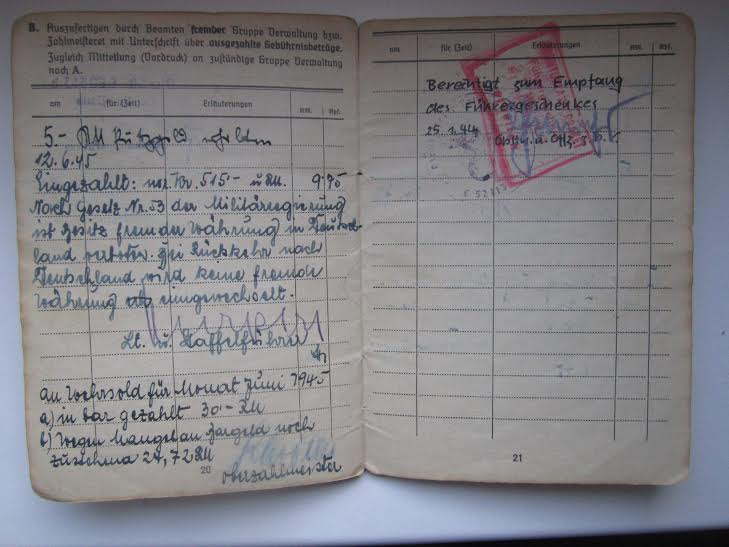 B. Auszufertigen durch Beamten fremder Gruppe Verwaltung bzw.
Zahlmeisterei mit Unterschrift über ausgezahlte Gebührnisbeträge.
Zugleich Mitteilung (Vordruck) an zuständige Gruppe Verwaltung
nach A.
am für (Zeit) Erläuterungen RM. Rpf.
5.- RM
12.6.45
Eingezahlt: nor. Kr. 515,- u RM. 9.95
Nach Gesetz Nr. 53 der Militärregierung
ist Besitz fremder Währung in Deutsch-
land verboten. Bei Rückkehr nach
Deutschland wird keine fremde
Währung eingewechselt.
Lt. u. Staffelführer
an Wehrsold für Monat Juni 1945
a) in bar gezahlt 30,- RM
b) Wegen Mangel an Bargeld noch
24,72 RM
Oberzahlmeister
20
am für (Zeit) Erläuterungen RM. Rpf.
Berechtigt zum Empfang
des Führergeschenkes
25.1.44
21